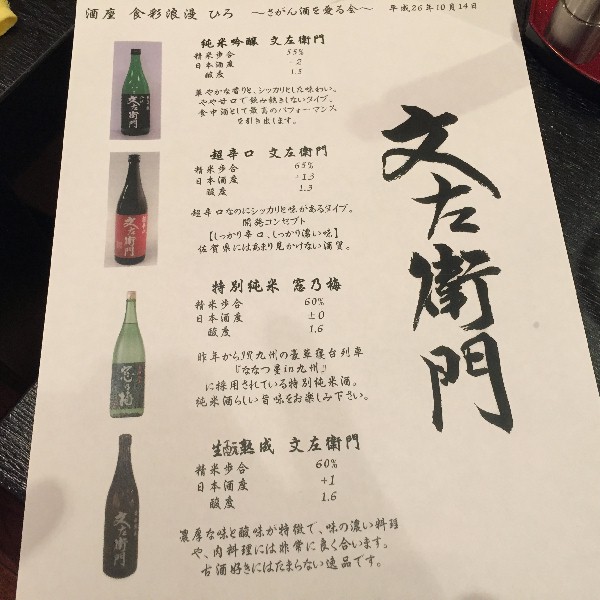 酒座 食彩浪漫 ひろ ～さがん酒を愛る会～ 平成26年10月14日
純米吟醸 文左衛門
精米歩合 55%
日本酒度 -2
酸度 1.5
華やかな香りと、シッカリとした味わい。
やや甘口で飲み飽きしないタイプ。
食中酒として最高のパフォーマンス
を引き出します。
超辛口 文左衛門
精米歩合 65%
日本酒度 +13
酸度 1.3
超辛口なのにシッカリと味があるタイプ。
開発コンセプト
【しっかり辛口、しっかり濃い味】
佐賀県にはあまり見かけない酒質。
特別純米 窓乃梅
精米歩合 60%
日本酒度 ±0
酸度 1.6
昨年からJR九州の豪華寝台列車
『ななつ星in九州』
に採用されている特別純米酒。
純米酒らしい旨味をお楽しみ下さい。
生酛熟成 文左衛門
精米歩合 60%
日本酒度 +1
酸度 1.6
濃厚な味と酸味が特徴で、味の濃い料理
や、肉料理には非常に良く合います。
古酒好きにはたまらない逸品です。
文左衛門
文左衛門
文左衛門
窓乃梅
文左衛門